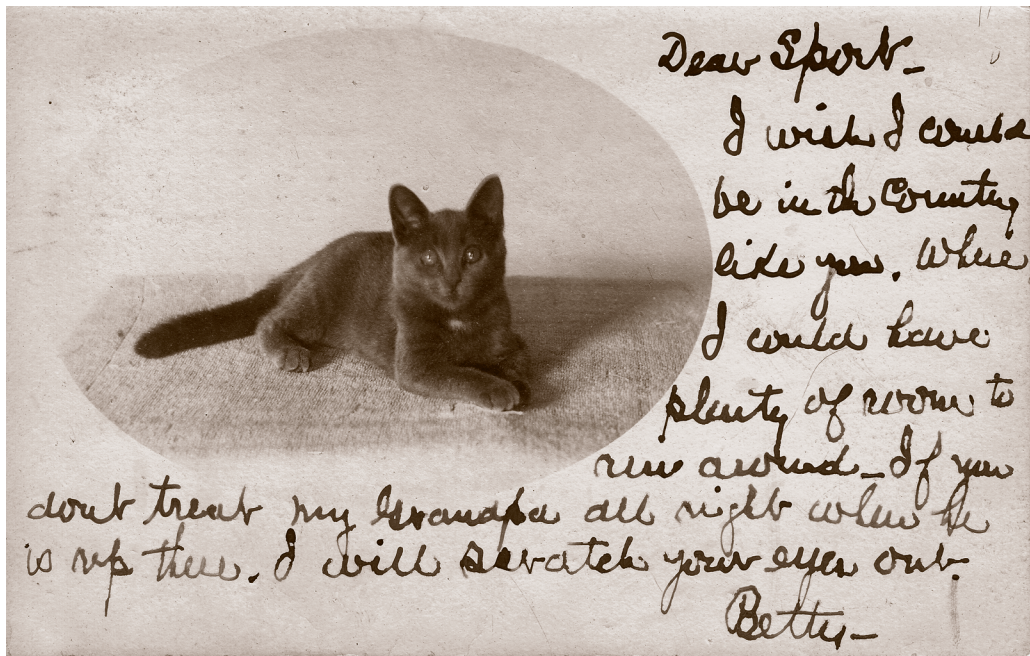 Dear Spork-
I wish I could
be in the Country
like you. Where
I could have
plenty of room to
run around - If you
dont treat my Grandpa all right when he
is up there. I will scratch your eyes out.
Betty-